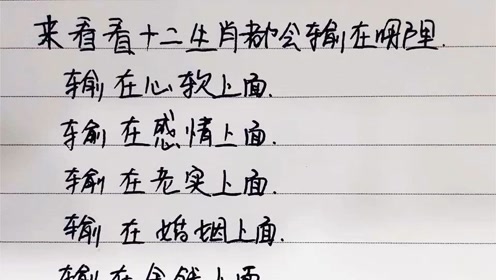 来看看十二生肖都会输在哪里.
输在心软上面.
输在感情上面.
输在老实上面.
输在婚姻上面.
输在金钱上面